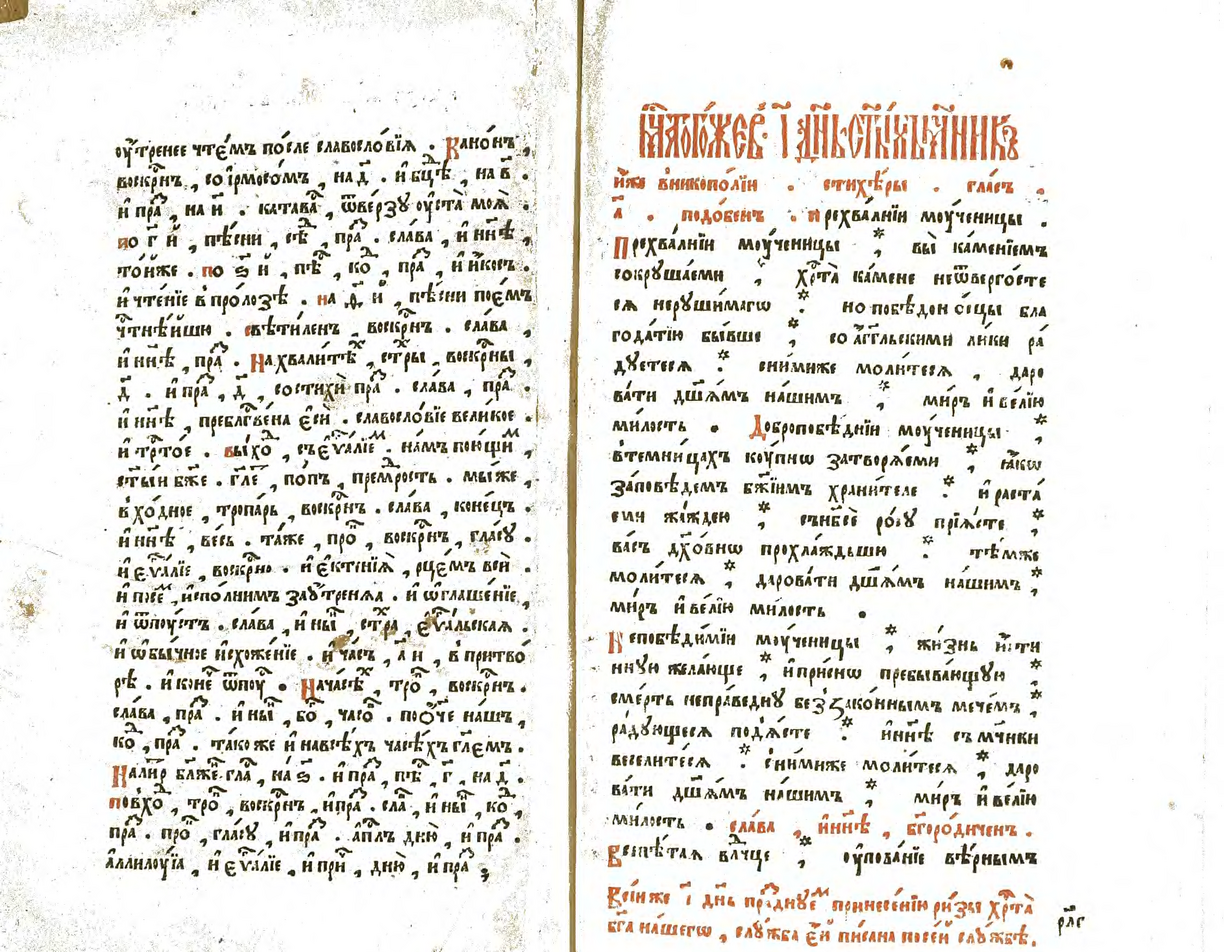 оу҆́тренее чте́мъ по́сле славосло́вїѧ . Кано́нъ ,
воскрⷭ҇нъ , со і҆рмосо́мъ , на д҃ . и҆ бцⷣѣ , на в҃ .
и҆ праⷥ , на и҃ . катаваⷭ , ѿверзу оу҆ста̀ моѧ̀ .
по г҃ й , пѣ́сни , сѣⷣ , праⷥ . слава , и҆ нн҃ѣ ,
то́йже . по ѕ҃ й , пѣⷭ , коⷣ , праⷥ , и҆ и҆́косъ .
и҆ чте́нїе в̾ пролозѣ . на д҃ , й , пѣ́сни пое́мъ
чⷭ҇тнѣ́йшю . свѣти́ленъ , воскрⷭ҇нъ . слава ,
и҆ нн҃ѣ , праⷥ . На хвали́тѣⷯ , стⷯры , воскрⷭ҇ны ,
д҃ . и҆ праⷥ , д҃ , со стихи̑ праⷥ . слава , праⷥ .
и҆ нн҃ѣ , преблⷭ҇ве́на є҆сѝ . славосло́вїе вели́кое .
и҆ трⷭ҇то́е . вы́хоⷣ , съ є҆ѵⷢ҇а́лїеⷨ . на́мъ пою́щиⷨ ,
ст҃ы́и бж҃е . гл҃е , по́пъ , премⷣрость . мы́ же ,
в̾хо́дное , тропа́рь , воскрⷭ҇нъ . слава , коне́цъ .
и҆ нн҃ѣ , весь . та́же , проⷦ , воскрⷭ҇нъ , гла́су .
и҆ є҆ѵⷢ҇а́лїе , воскрⷭ҇но . и҆ є҆ктенїѧ̀ , рце́мъ всѝ .
и҆ посеⷨ , и҆спо́лнимъ заоу́тренѧѧ . и҆ ѡ҆глаше́нїе ,
и҆ ѿпу́стъ . слава , и҆ ны҃ , стⷯра , є҆ѵⷢ҇альская .
и҆ ѡ҆бы́чное и҆схожде́нїе . и҆ ча́съ , а҃ и , в̾ притво́
рѣ . и҆ коне́ ѿпоуⷭ . На часѣⷯ , троⷫ , воскрⷭ҇нъ .
слава , праⷥ . и҆ ны҃ , боⷢ , часоⷡ . по ѻ҆́ч҃е на́шъ ,
коⷣ , праⷥ . та́коже и҆ на всѣ́хъ часѣ́хъ гл҃емъ .
На лиⷮр бл҃же́ гла , на ѕ҃ . и҆ праⷥ , пѣⷭ , г҃ , на д҃ .
по вхоⷣ , троⷫ , воскрⷭ҇нъ , и҆ праⷥ . сла , и҆ ны҃ , коⷣ ,
праⷥ . проⷦ , гла́су , и҆ праⷥ . а҆пⷭ҇лъ дню̀ , и҆ праⷥ .
а҆ллилоу́їа , и҆ є҆ѵⷢ҇а́лїе , и҆ при , дню̀ , и҆ праⷥ ,
мⷭ҇ца того́же в̾ . і҃ дн҃ь . ст҃ы́хъ мч҃никъ
и҆́же в̾ никопо́лїи . стихѣ́ры . гла́съ .
а҃ . подо́бенъ . прехва́лнїи моу́ченицы .
Прехва́лнїи моу́ченицы * вы̀ ка́менїемъ
сокруша́еми , хрⷭ҇та̀ ка́мене не ѿверго́сте
сѧ неруши́магѡ * но побѣдоно́сцы бла
года́тїю бы́вше , со а҆́гг҃льскими ли́ки ра́
дуетесѧ * с ни́миже моли́тесѧ , даро
ва́ти дш҃а́мъ на́шимъ , ми́ръ и҆ ве́лїю
ми́лость . Добропобѣ́днїи моу́ченицы *
в̾ темни́цахъ коу́пнѡ затворѧ́еми , ꙗ҆́кѡ
за́повѣдемъ бж҃їимъ храни́теле * и҆ раста́
еми жа́ждею , съ нб҃сѐ ро́су прїѧ́сте *
ва́съ дх҃о́внѡ прохлажда́ьшю * тѣ́мже
моли́тесѧ , дарова́ти дш҃а́мъ на́шимъ *
ми́ръ и҆ ве́лїю ми́лость .
Непобѣди́мїи моу́ченицы * жи́знь и҆́сти
нную жела́юще * и҆ при́снѡ пребыва́ющую
сме́рть непра́ведну беззако́ннымъ мече́мъ
ра́дующесѧ под̾ѧ́сте * и҆ нн҃ѣ съ мч҃ники
весели́тесѧ * с ни́миже моли́тесѧ , даро
ва́ти дш҃а́мъ на́шимъ , ми́ръ и҆ ве́лїю
ми́лость . сла́ва , и҆ нн҃ѣ , бг҃оро́диченъ .
Всепѣ́таѧ влⷣчце , оу҆пова́нїе вѣ́рнымъ
Всі́й же і҃ дн҃ь праⷥднуеⷨ принесе́нїю ри́зы хрⷭ҇та̀
бг҃а на́шегѡ , слу́жба є҆́й пи́сана по се́й слу́жбѣ .
рл҃г